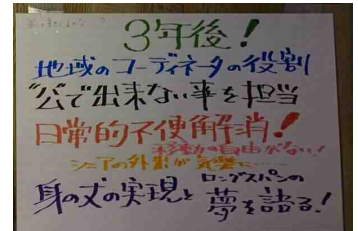 3年後!
地域のコーディネータの役割
"公"で出来ない事を担当
日常的不便解消!
移動の自由がない!
シニアの外出が気楽に……
身の丈の実現とロングスパンの
夢を語る!